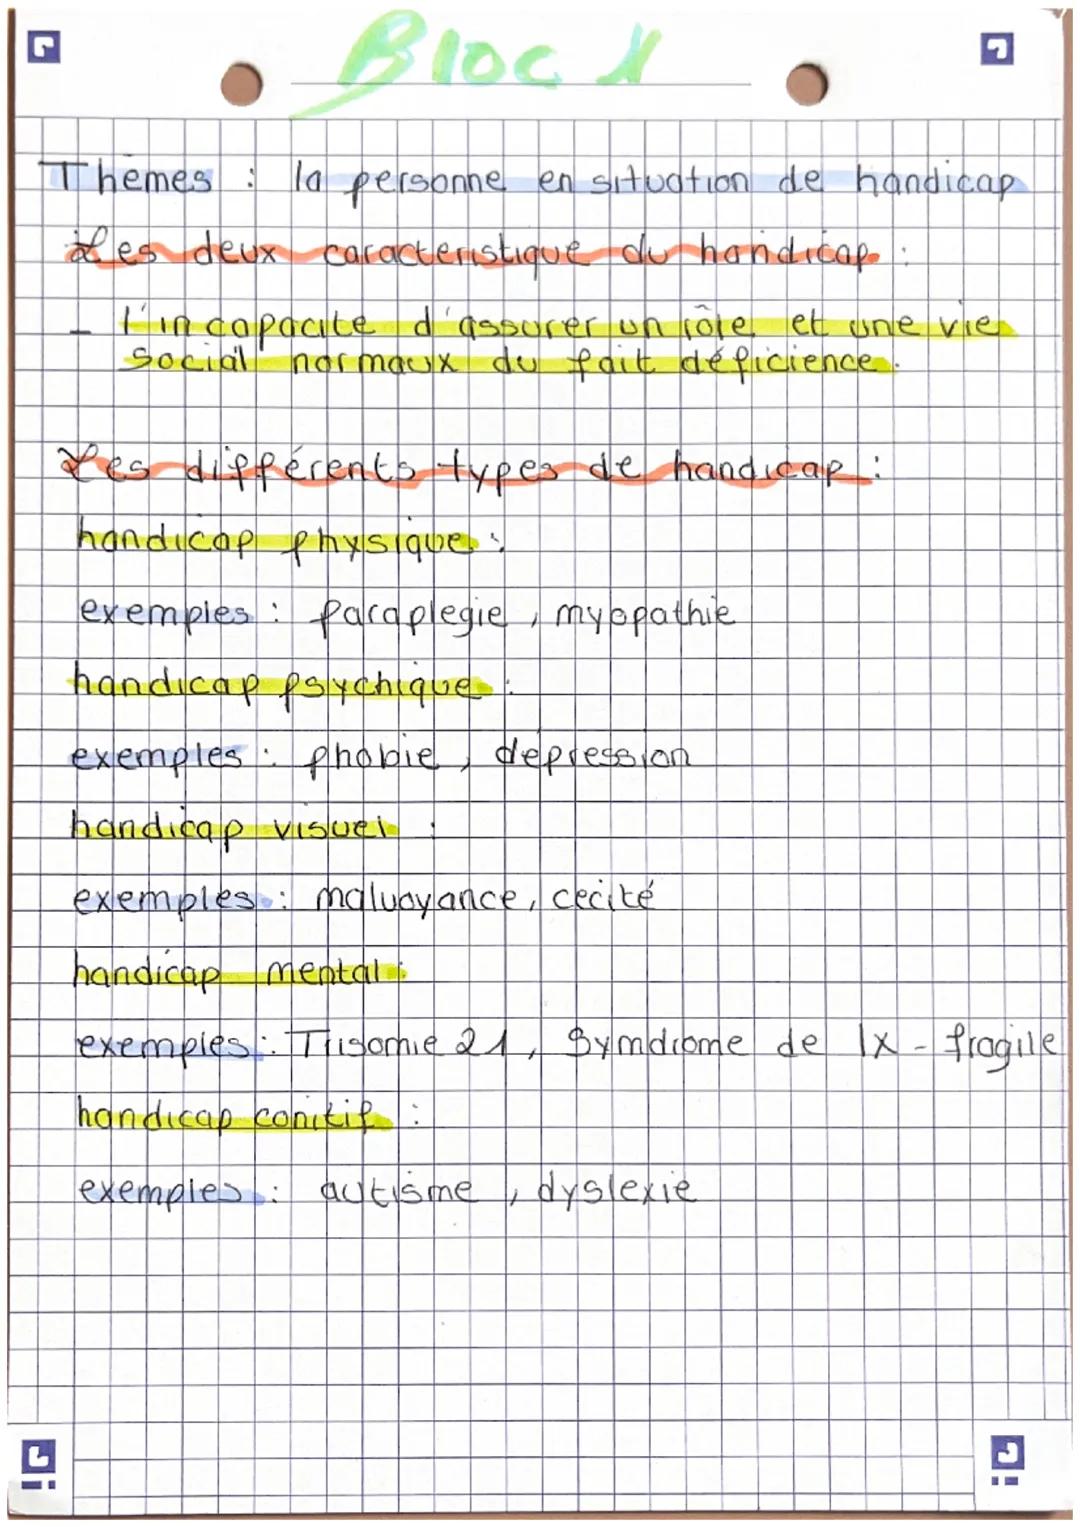 Bloc 1
Thèmes : la personne en situation de handicap
Les deux caracteristique du handicap :
- l'incapacité d'assurer un rôle et une vie
social normaux du fait déficience.
Les différents types de handicap :
handicap physique :
exemples : paraplegie, myopathie
handicap psychique :
exemples : phobie, dépression
handicap visuel :
exemples : malvoyance, cécité
handicap mental :
exemples : Trisomie 21, Symdrome de lx-fragile
handicap conitif :
exemples : autisme, dyslexie